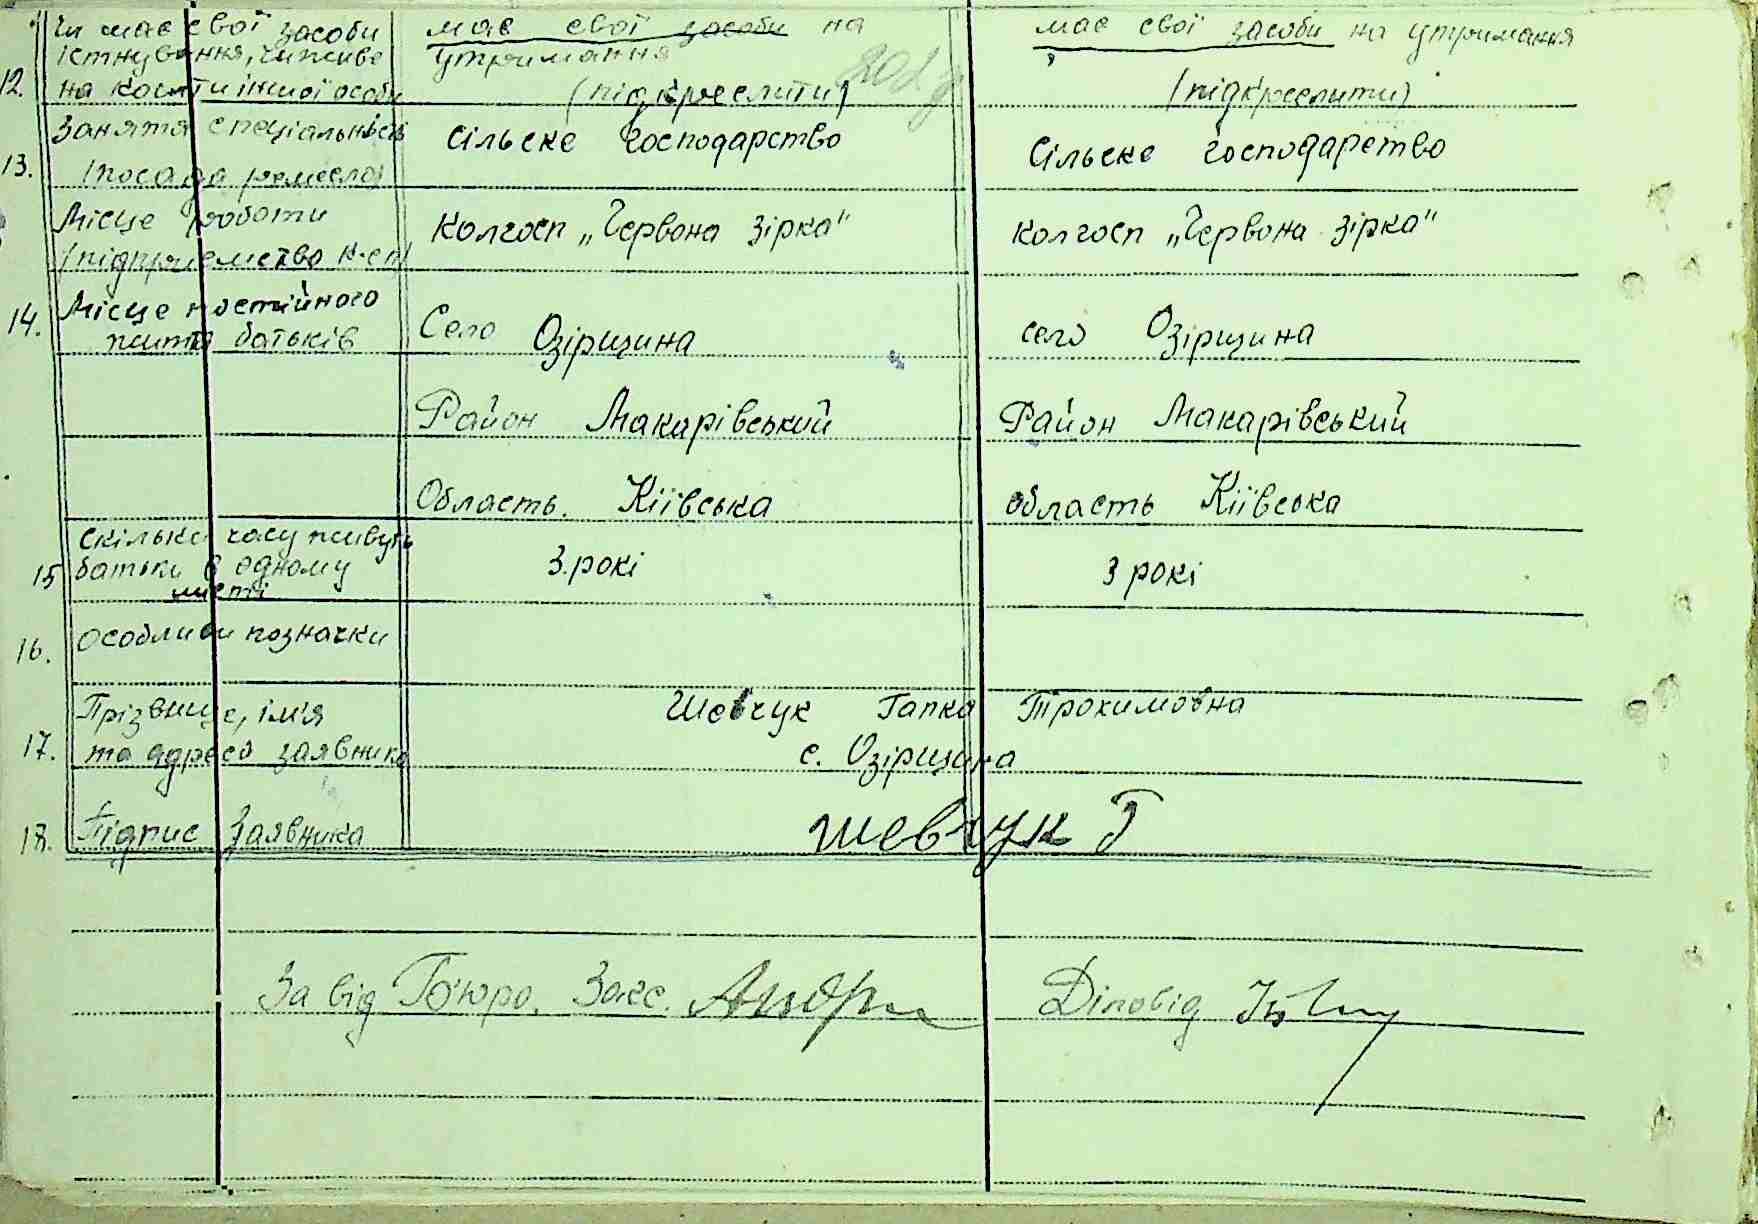 Чи має свої засоби має свої засоби на має свої засоби на утримання
існування, чи живе утримання
12. на кошти іншої особи (підкреслити) (підкреслити)
Заняття спеціальність сільске господарство сільске господарство
13. (посада ремесло)
Місце роботи колгосп „Червона зірка" колгосп „Червона зірка"
(підприємство
14. Місце постійного Село Озірщина село Озірщина
життя батьків
Район Макарівський Район Макарівський
Область. Кіівська область Кіівська
Скілько часу живуть
15 батьки в одному 3.рокі 3 рокі
місті
16. особливи позначки
Прізвище, ім'я Шевчук Гапка Трохимовна
17. та адреса заявника с. Озірщина
18. Підпис Заявника шевчук Г
За від Б'юро. Загс. Діловід